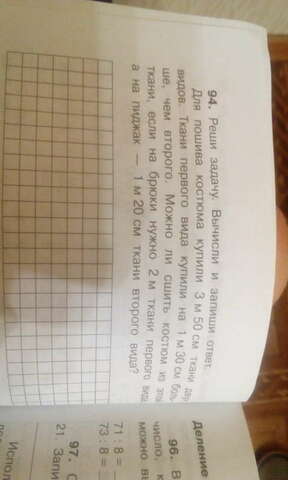 94. Реши задачу. Вычисли и запиши ответ.
Для пошива костюма купили 3 м 50 см ткани двух
видов. Ткани первого вида купили на 1 м 30 см боль-
ше, чем второго. Можно ли сшить костюм из этой
ткани, если на брюки нужно 2 м ткани первого вида,
а на пиджак — 1 м 20 см ткани второго вида?
Деление
96. В
число, к
можно вы
71 : 8 =
73 : 8 =
97. С
21. Запи
Испол